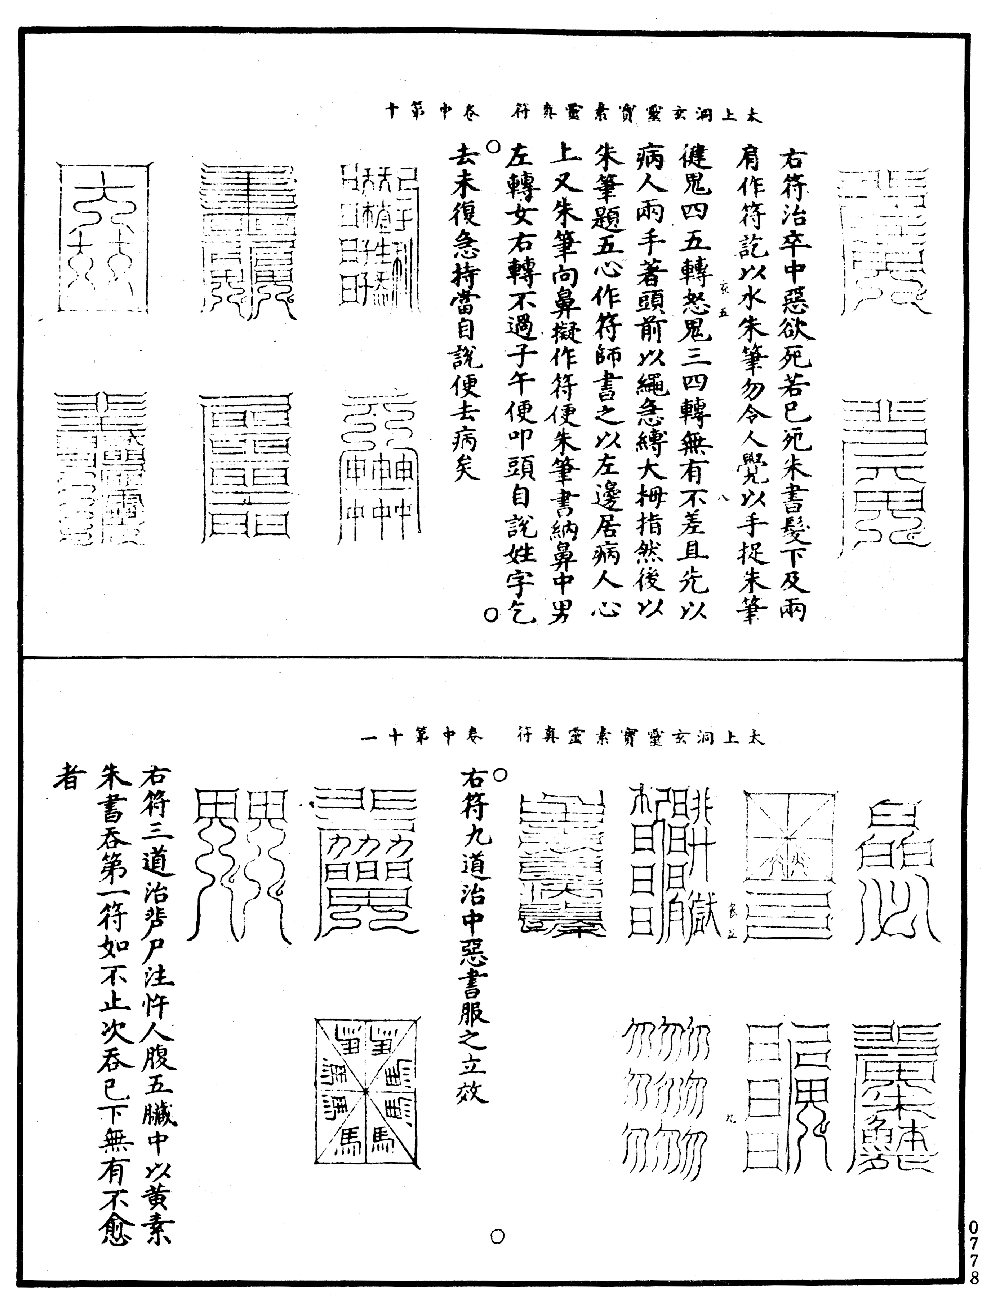 太上洞玄靈寶素靈真符　卷中第十
右符治卒中惡欲死若已死朱書髮下及兩
肩作符訖以水朱筆勿令人覺以手捉朱筆
健鬼四五轉怒鬼三四轉無有不差且先以
病人兩手著頭前以繩急縛大拇指然後以
朱筆題五心作符師書之以左邊居病人心
上又朱筆向鼻擬作符便朱筆書納鼻中男
左轉女右轉不過子午便叩頭自說姓字乞
去未復急持當自說便去病矣
太上洞玄靈寶素靈真符　卷中第十一
右符九道治中惡書服之立效
右符三道治蜚尸注忤人腹五臟中以黃素
朱書吞第一符如不止次吞已下無有不愈
者
0778